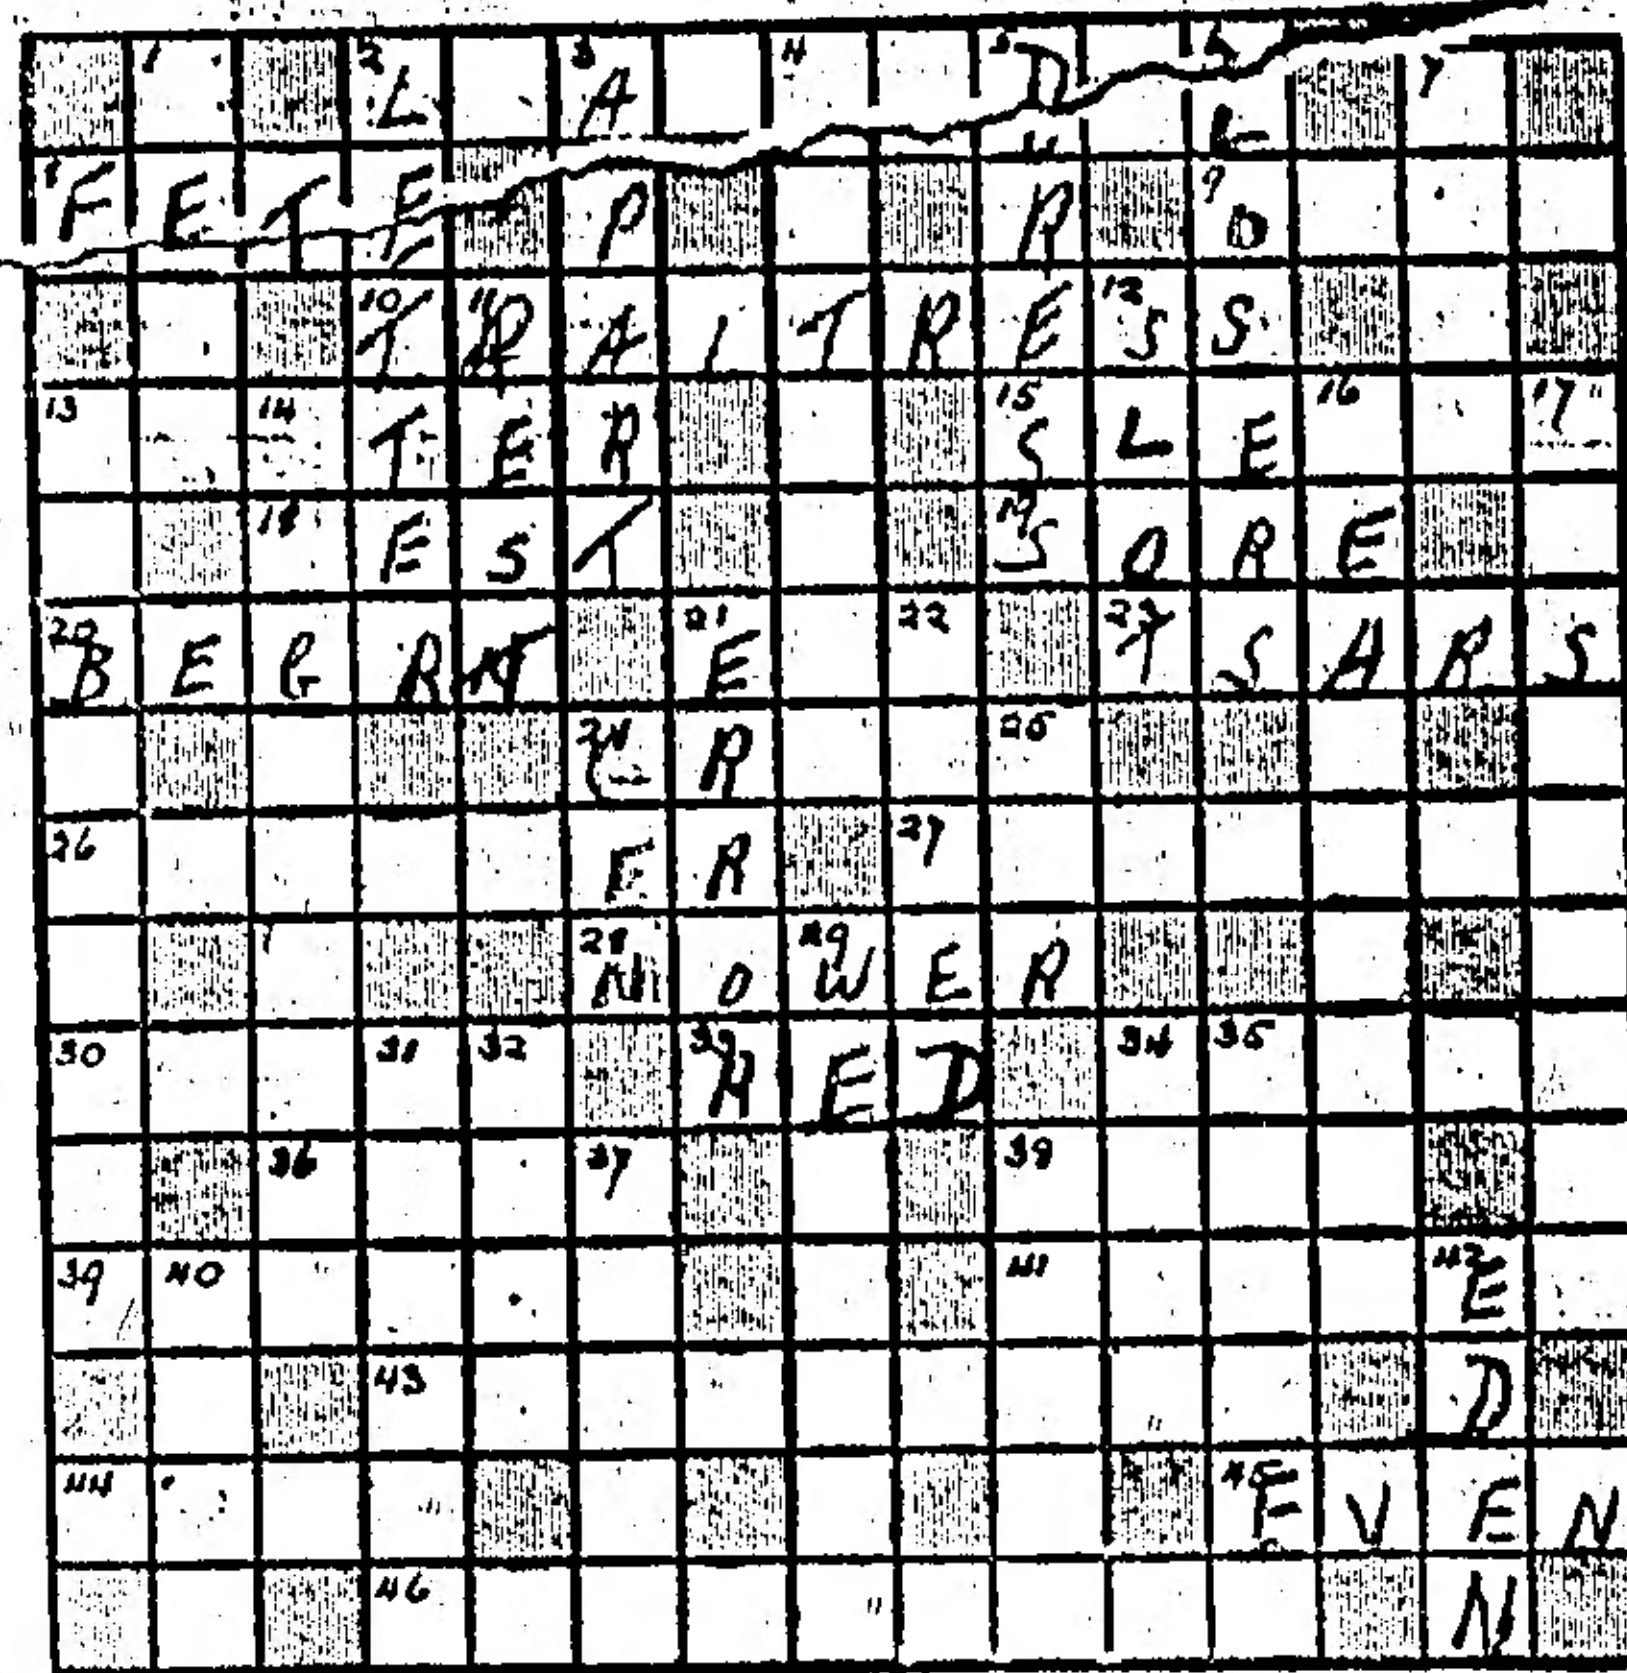 1 2 L 3 A 4 5 D 6 L 7
8 F E T E P R 9 O
10 T 11 R A I T R E 12 S S
13 14 T E R 15 S L E 16 17
18 E S T 19 S O R E
20 B E G R 21 E 22 23 T S A R S
24 R 25
26 E R 27
28 N O 29 W E R
30 31 32 33 R E D 34 35
36 37 38
39 40 41 42 E
43 D
44 45 E V E N
46 N